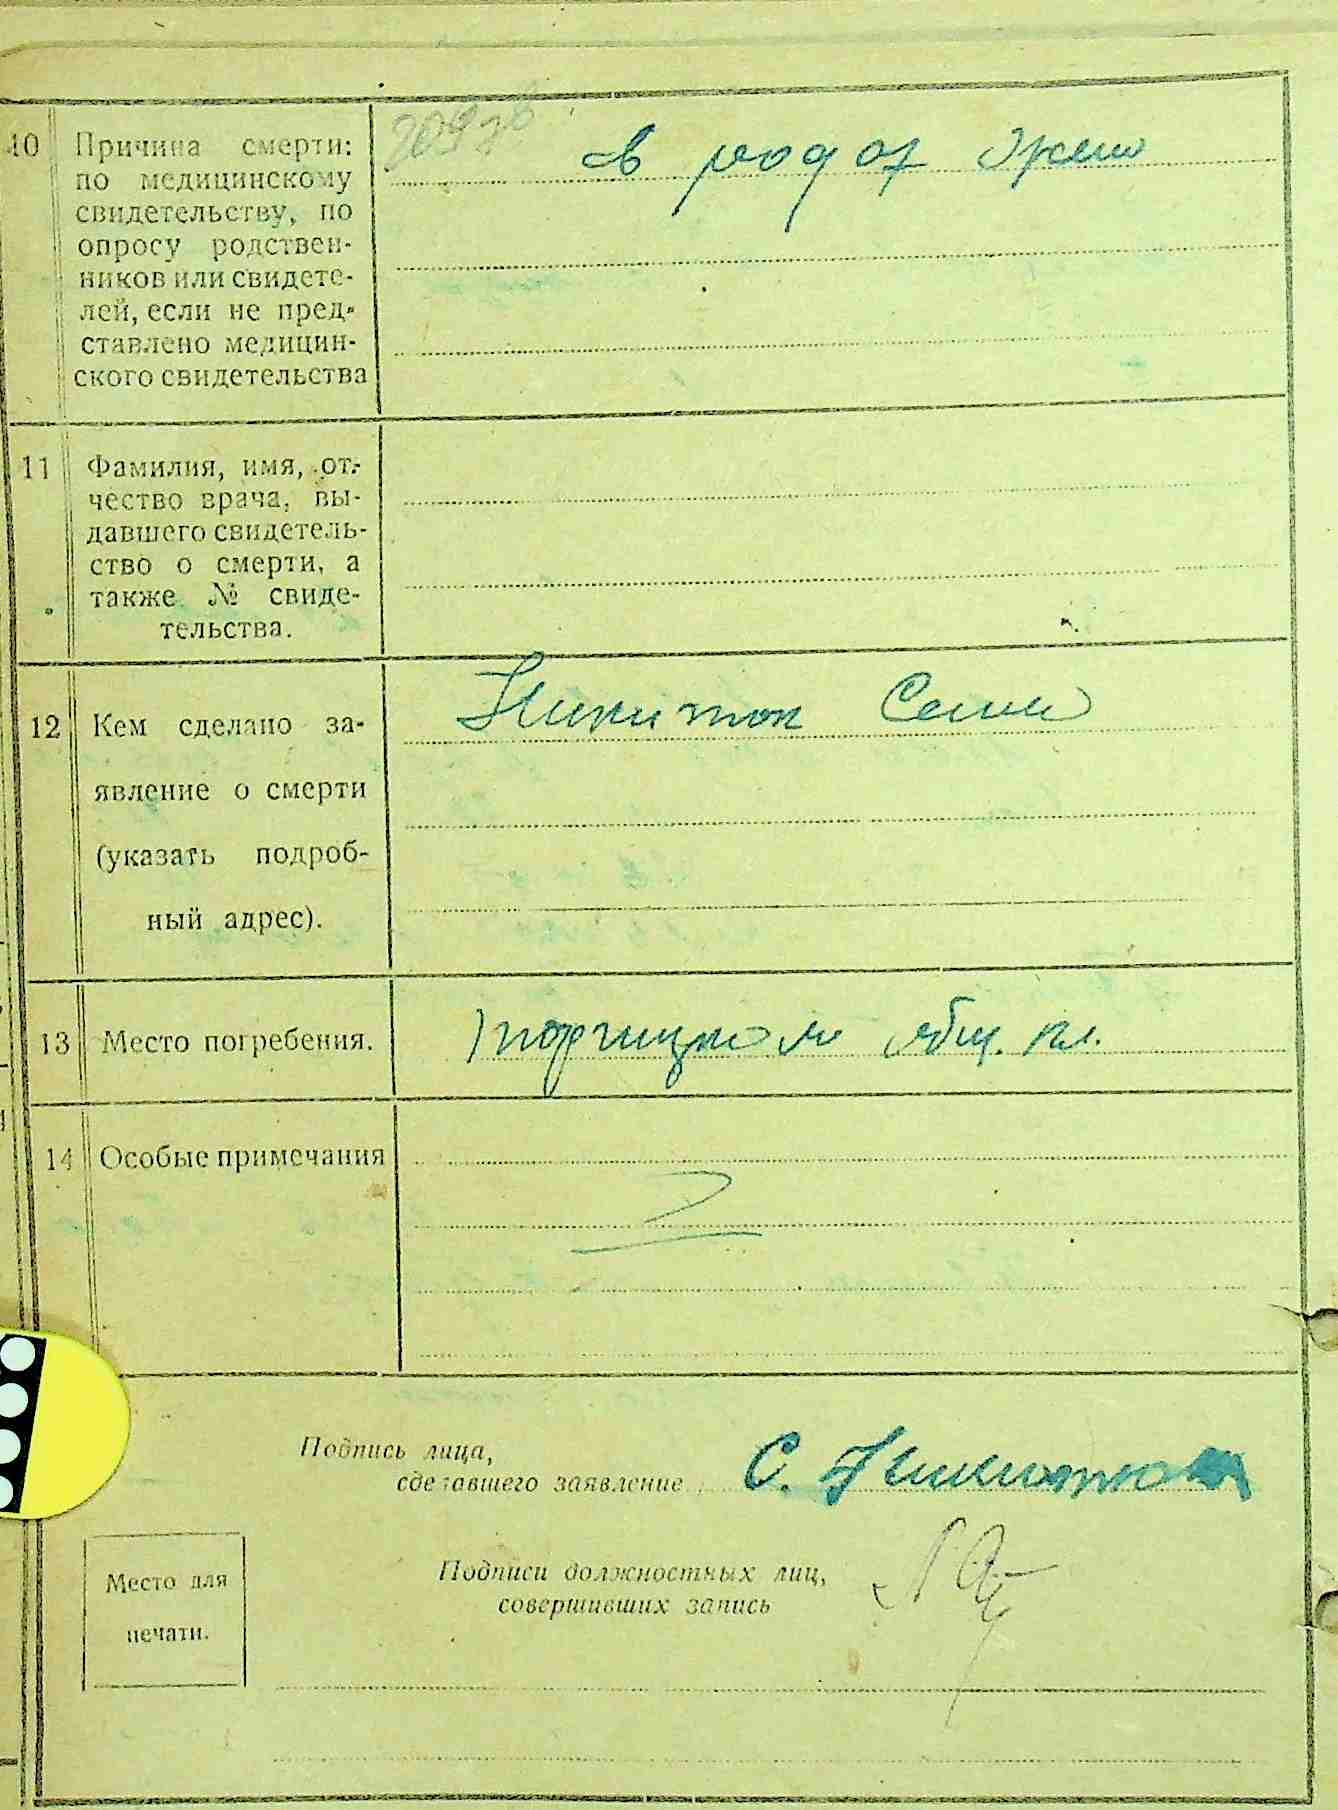 10 Причина смерти:
по медицинскому
свидетельству, по
опросу родствен-
ников или свидете-
лей, если не пред-
ставлено медицин-
ского свидетельства
в
11 Фамилия, имя, от-
чество врача, вы-
давшего свидетель-
ство о смерти, а
также № свиде-
тельства.
12 Кем сделано за-
явление о смерти
(указать подроб-
ный адрес).
Никиток Семен
13 Место погребения.
общ. кл.
14 Особые примечания
Подпись лица,
сделавшего заявление С. Никиток
Место для
печати.
Подписи должностных лиц,
совершивших запись